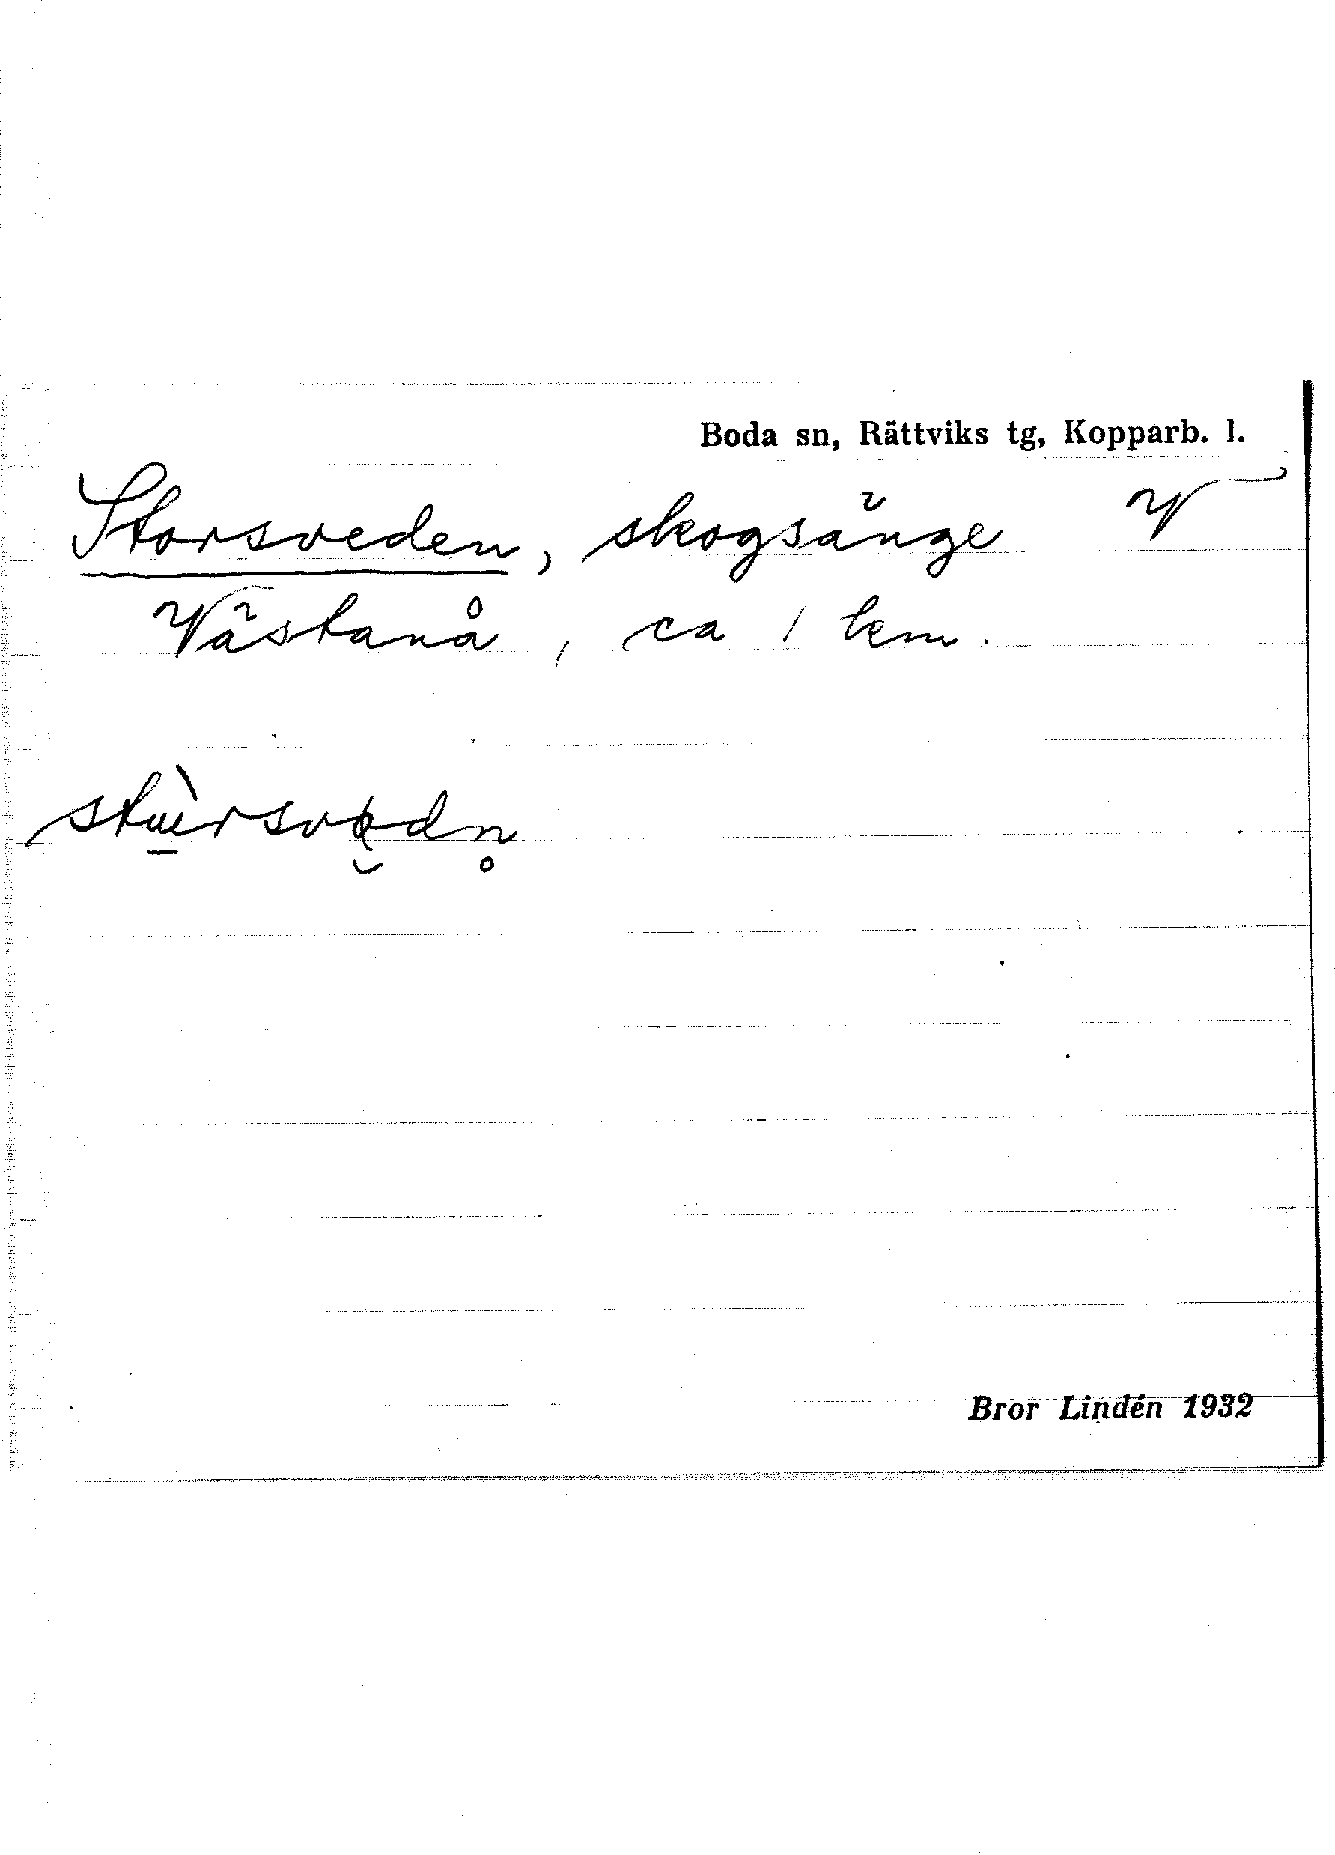 Boda sn, Rättviks tg, Kopparb. l.
Storsveden, skogsänge V
Västanå, ca 1 km.
Bror Lindén 1932